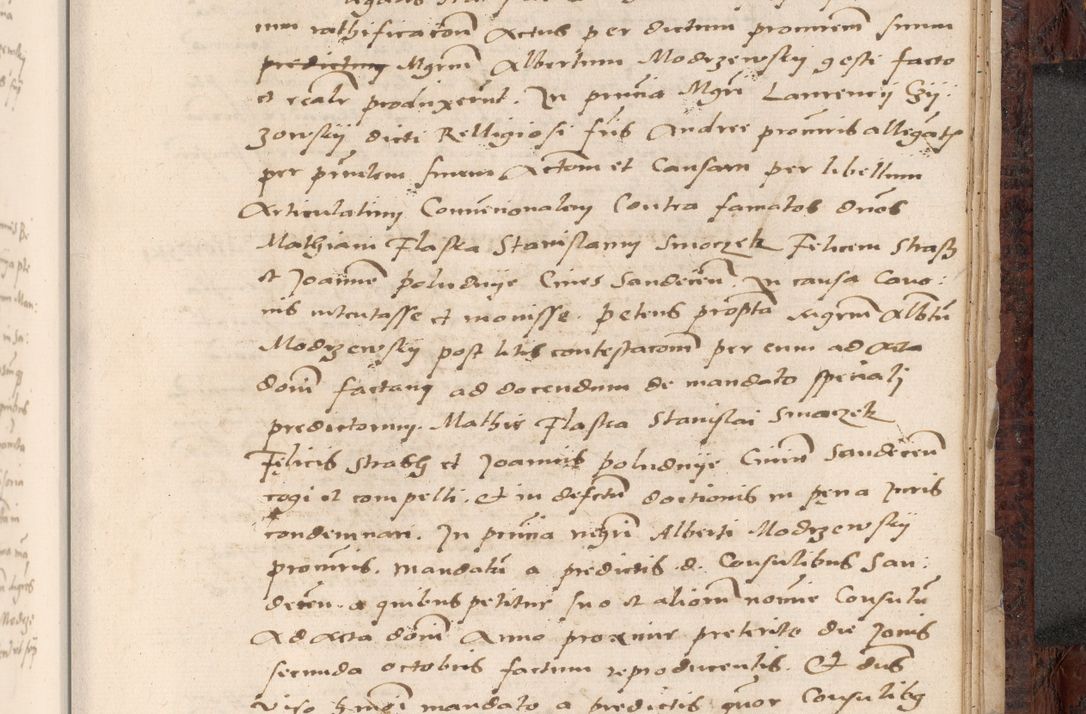 num rathificacom Actus per dictum procurem suum
predictum Mgrum Albertum Modrzewsky gesti facto
et realr produxerunt. In pñcia Mgri Laurencij Gij:
zowskij dicti Relligiosi fris Andree procuris allegãt
per pñntem suum Actom et Causam per libellum
Articulatum Convencionalem Contra famatos dnos
Mathiam Flaska Stanislaum Smoczek Felicem Strasz
et Joannẽ poludnije Cives Sandecen. In causa Cano:
nis intentasse et movisse. petens propta mgrum Albtũ
Modrzewsky post litis contestacom per eum ad Acta
dom factam ad docendum de mandato speciali
predictorum. Mathie Flaska Stanislai Smaczek
Felicis Strash et Joannis poludnije Civiũ Sandecen
cogi et compelli. Et in defectũ doctionis in pena Juris
condemnari. In pñcia mgri Alberti Modrzewskij
procuris. mandatũ a predictis d. Consulibus San:
decen. a quibus petitur suo et aliorum nomine Consulũ
Ad Acta dom Anno proxime preterito die Jovis
secunda octobris factum reproducentis. Et dns
viso hmoi mandato a predictis quor Consulibg